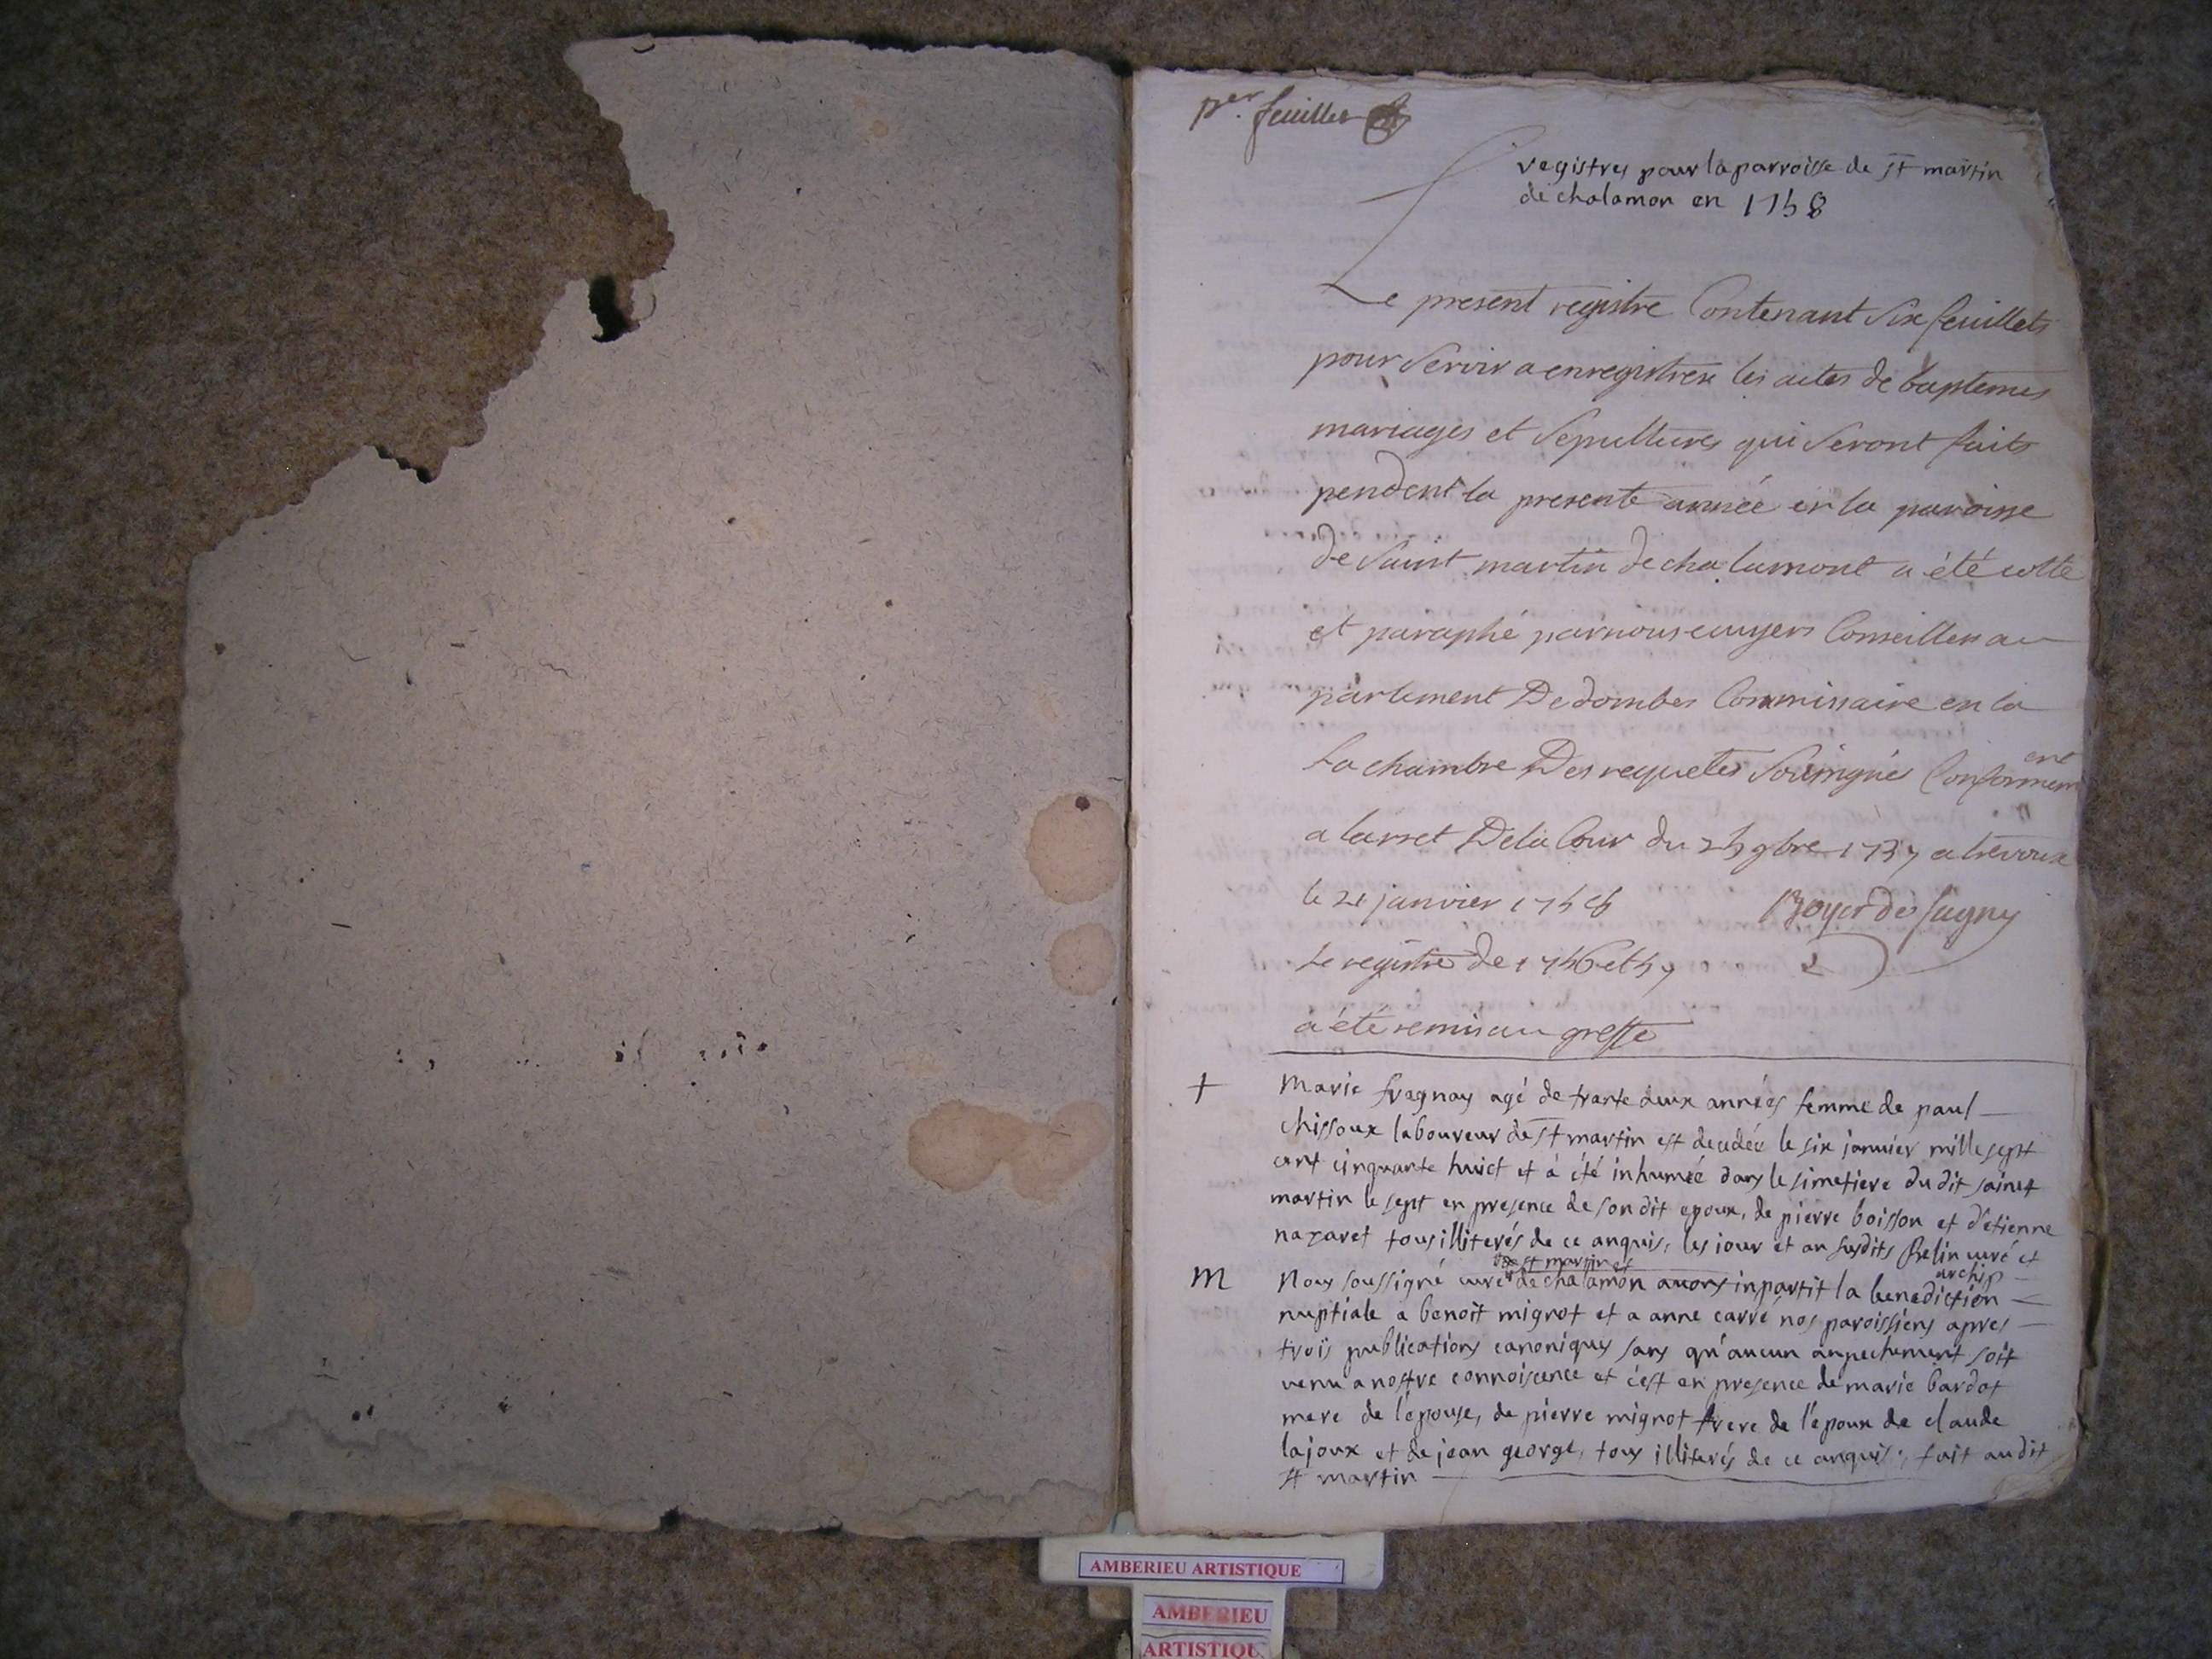 per. feuillet
registres pour la parroisse de st martin
de chalamon en 1758
Le present registre Contenant Six feuillets
pour Servir a enregistrer les actes de baptemes
mariages et Sepultures qui Seront faits
pendent la presente année en la paroisse
de Saint martin de chalamont a été cotté
et paraphé par nous ecuyer Conseiller au
parlement De dombes Commissaire en la
La chambre Des requetes Soussigné Conformement
a larret De la Cour du 25 9bre 1737 a trevoux
le 21 janvier 1758 Boyer de Sugny
Le registre de 1756 et 57
a été remis au greffe
+ marie fragnay agé de trante deux années femme de paul
chissoux laboureur de St martin est decedée le six janvier mille sept
cent cinquante huict et à été inhumée dans le simetiere du dit sainct
martin le sept en presence de son dit epoux, de pierre boisson et d'etienne
nazaret tous illiterés de ce anquis, les jour et an susdits Belin curé et
archip
de st martin et
m Nous soussigné curé de chalamon avons inpartit la benediction
nuptiale a benoit mignot et a anne carré nos paroissiens apres
trois publications canoniques sans qu'aucun anpechement soit
venu a nostre connoiscence et c'est en presence de marie bardot
mere de l'epouse, de pierre mignot frere de l'epoux de claude
lajoux et de jean george, tous illiterés de ce anquis, fait au dit
st martin
AMBERIEU ARTISTIQUE
AMBERIEU
ARTISTIQU